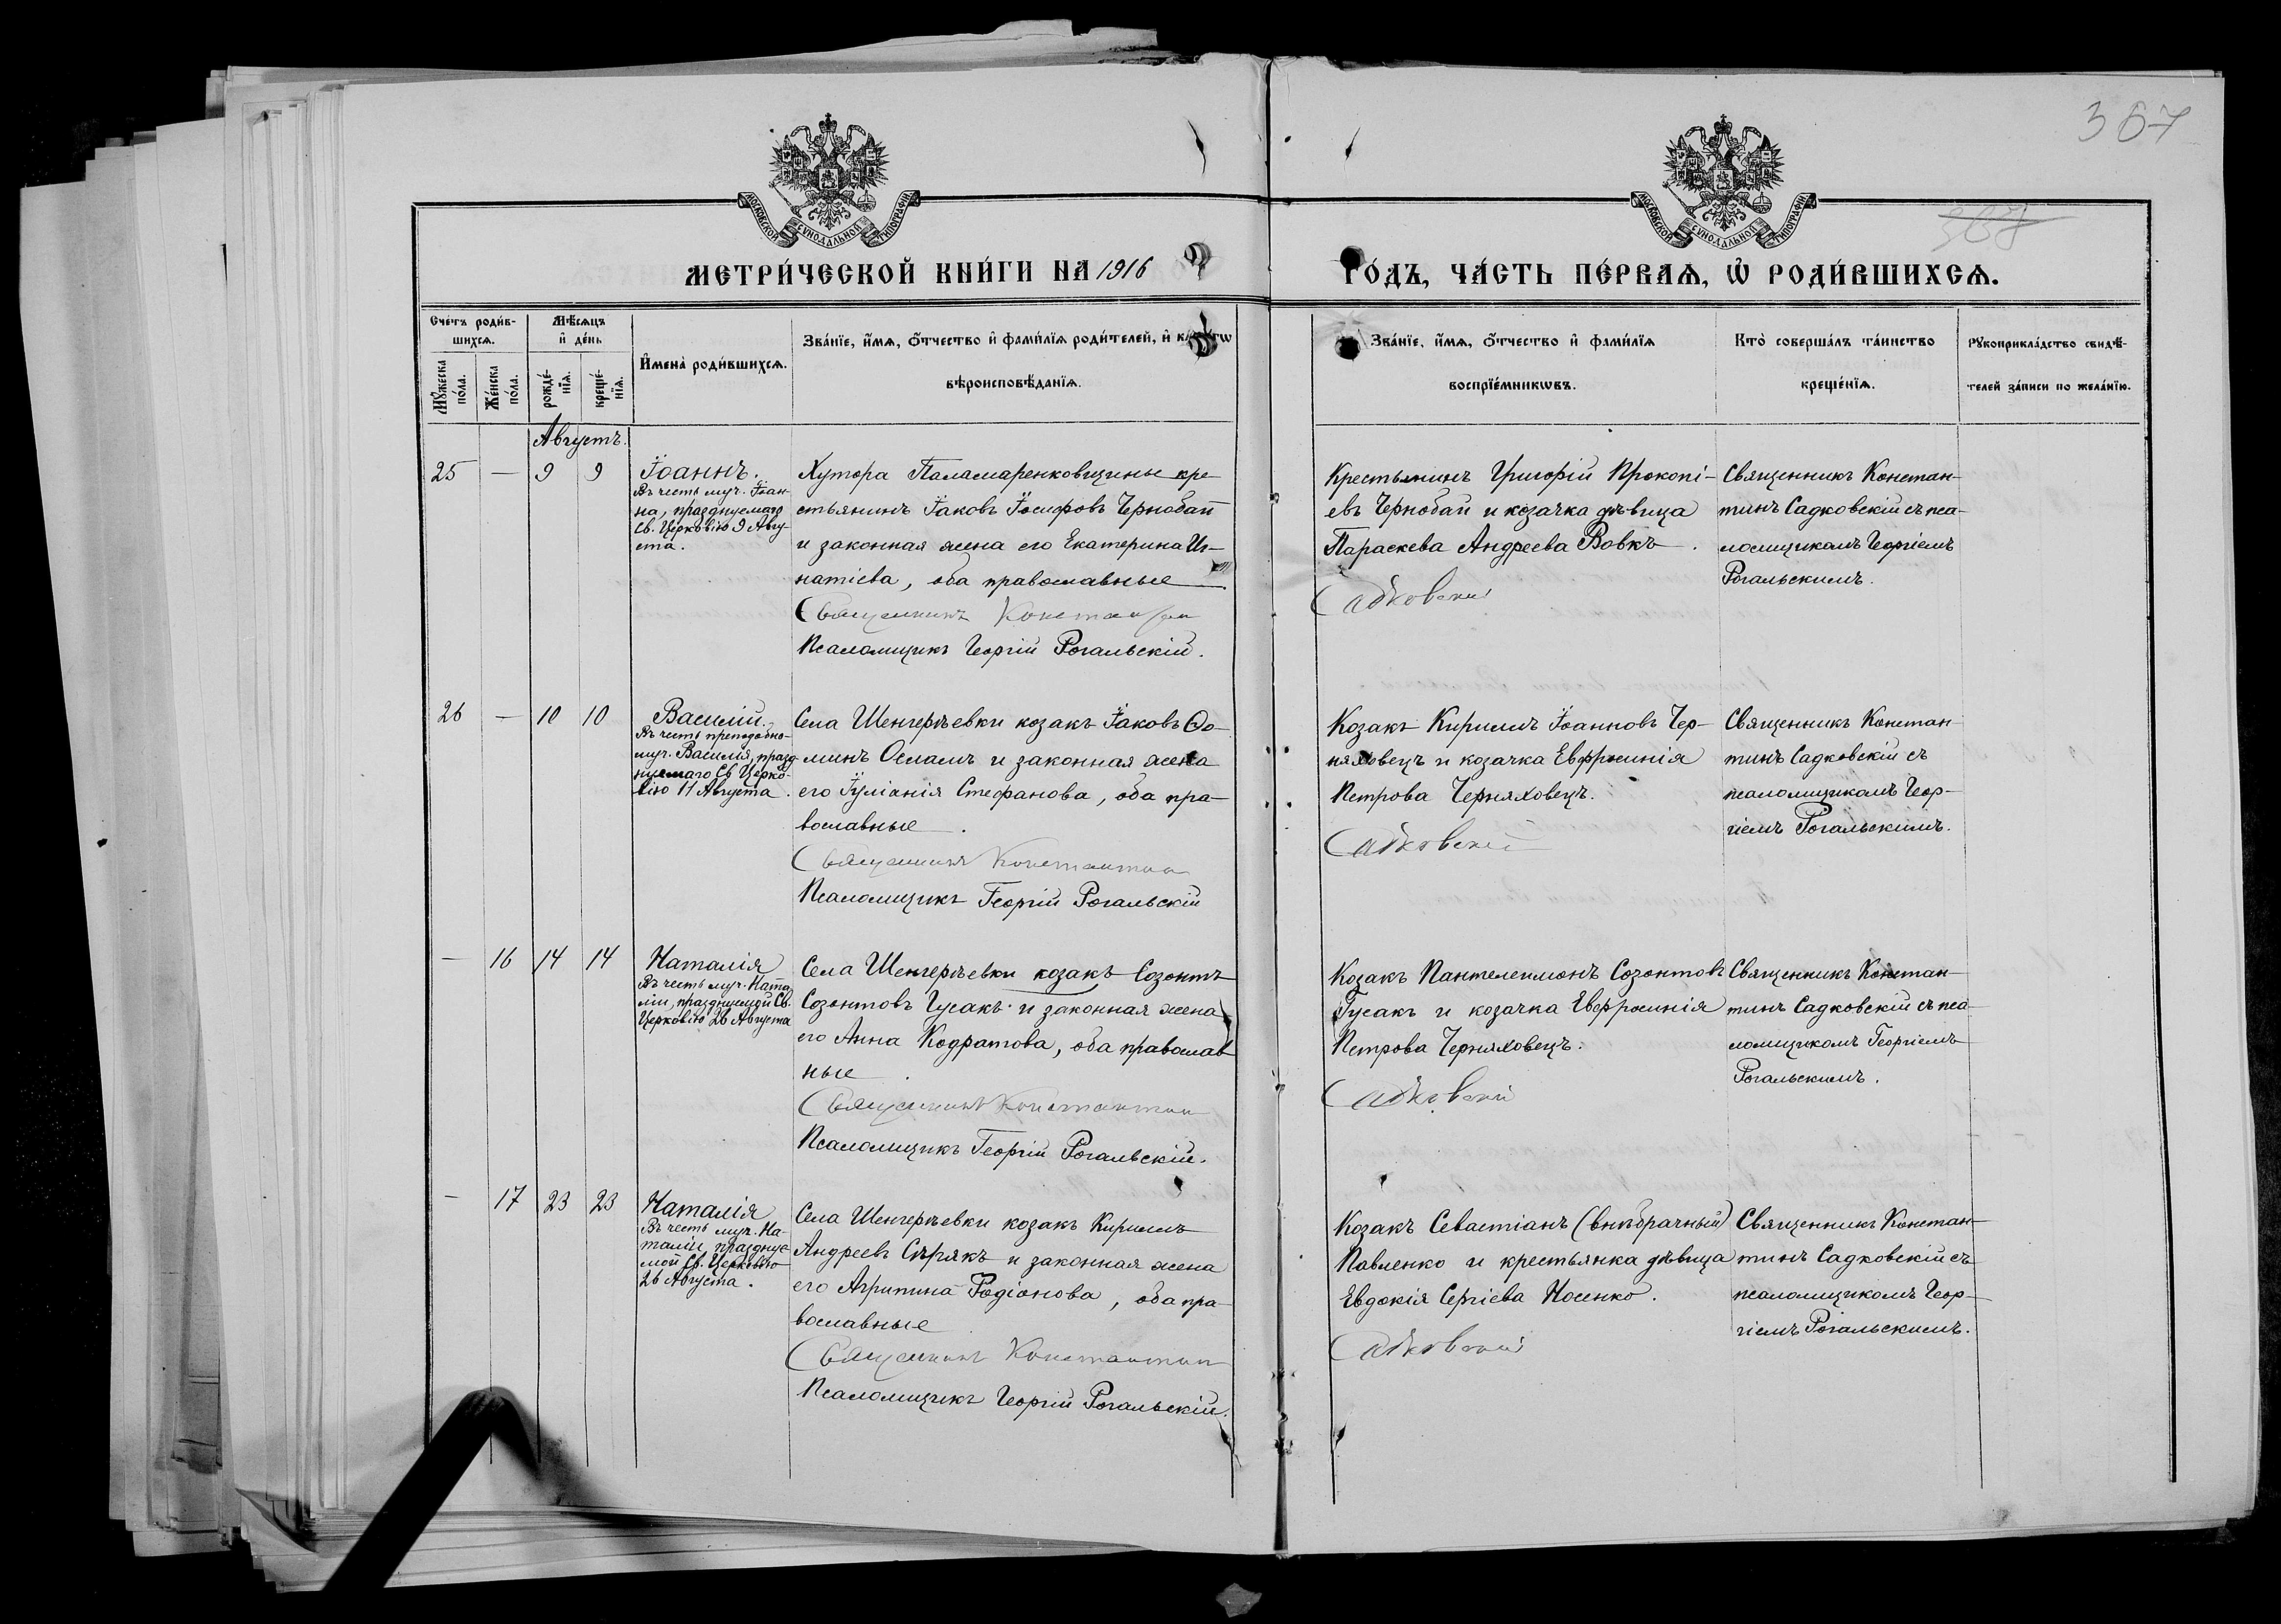 367
МОСКОВСКОЙ СУНОДАЛЬНОЙ ТИПОГРАФІИ
МОСКОВСКОЙ СУНОДАЛЬНОЙ ТИПОГРАФІИ
367
МЕТРИ́ЧЕСКОЙ КНИ́ГИ НА 1916
ГО́ДЪ, ЧА́СТЬ ПЕ́РВАЯ, Ѽ РОДИ́ВШИХСЯ.
Сче́тъ роди́в-
шихсѧ.
Мѣ́сѧцъ
и҆ де́нь
Мꙋ́жеска
по́ла.
Же́нска
по́ла.
рожде́-
нїѧ.
креще́-
нїѧ.
И҆мена̀ роди́вшихсѧ.
Зва́нїе, и҆́мѧ, ѻ҆́тчество и҆ фами́лїѧ роди́телей, и҆
вѣроисповѣ́данїѧ.
Зва́нїе, и҆́мѧ, ѻ҆́тчество и҆ фами́лїѧ
воспрїе́мникѡвъ.
Кто̀ соверша́лъ та́инство
креще́нїѧ.
Рꙋкоприкла́дство свидѣ́-
телей за́писи по жела́нїю.
Августъ.
25 — 9 9
Іоаннъ.
Въ честь муч. Іоан-
на, празднуемаго
Св. Церковію 9 Авгу-
ста.
Хутора Паламаренковщины кре-
стьянинъ Іаковъ Іосифовъ Чернобай
и законная жена его Екатерина Иг-
натіева, оба православные
Священникъ Константин
Псаломщикъ Георгій Рогальскій.
Крестьянинъ Григорій Прокопі-
евъ Чернобай и козачка дѣвица
Параскева Андреева Вовкъ.
Садковскій
Священникъ Констан-
тинъ Садковскій съ пса-
ломщикомъ Георгіемъ
Рогальскимъ.
26 — 10 10
Василій.
Въ честь преподобно-
муч. Василія, празд-
нуемаго Св. Церко-
вію 11 Августа.
Села Шенгерѣевки козакъ Іаковъ Ѳо-
минъ Осламъ и законная жена
его Іуліанія Стефанова, оба пра-
вославные.
Священникъ Константин
Псаломщикъ Георгій Рогальскій
Козакъ Кириллъ Іоанновъ Чер-
няховецъ и козачка Евфросинія
Петрова Черняховецъ.
Садковскій
Священникъ Констан-
тинъ Садковскій съ
псаломщикомъ Геор-
гіемъ Рогальскимъ.
— 16 14 14
Наталія
Въ честь муч. Ната-
ліи, празднуемой Св.
Церковію 26 Августа
Села Шенгерѣевки козакъ Созонтъ
Созонтовъ Гусакъ и законная жена
его Анна Кодратова, оба православ-
ные.
Священникъ Константин
Псаломщикъ Георгій Рогальскій.
Козакъ Пантелеимонъ Созонтовъ
Гусакъ и козачка Евфросинія
Петрова Черняховецъ.
Садковскій
Священникъ Констан-
тинъ Садковскій съ пса-
ломщикомъ Георгіемъ
Рогальскимъ.
— 17 23 23
Наталія
Въ честь муч. На-
таліи, празднуе-
мой Св. Церковію
26 Августа.
Села Шенгерѣевки козакъ Кириллъ
Андреевъ Сѣрякъ и законная жена
его Агрипина Родіонова, оба пра-
вославные
Священникъ Константин
Псаломщикъ Георгій Рогальскій.
Козакъ Севастіанъ (внѣбрачный)
Павленко и крестьянка дѣвица
Евдокія Сергіева Носенко.
Садковскій
Священникъ Констан-
тинъ Садковскій съ
псаломщикомъ Геор-
гіемъ Рогальскимъ.